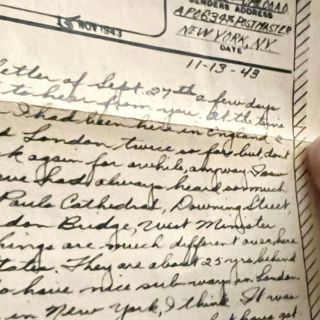 SENDERS ADDRESS
APO 634 % POSTMASTER
15 NOV 1943
NEW YORK, NY
DATE
11-13-43
letter of Sept. 27th a few days
to hear from you. At the time
I had been here in England, &
London twice so far but don't
again for awhile, anyway. I saw
have had always heard so much
Pauls Cathedral, Downing Street,
don Bridge, West Minister
things are much different over here
States. They are about 25 yrs behind
o have nice subways in London
in New York, I think. It was
have got